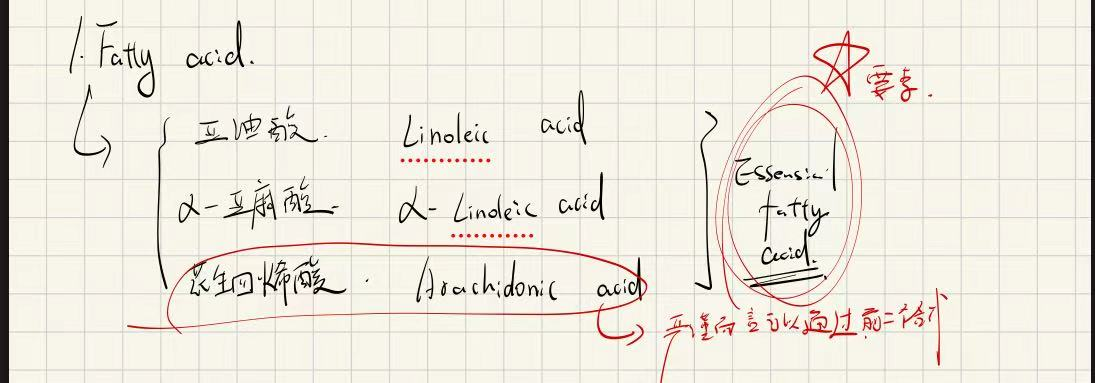 1. Fatty acid.
要考.
亚油酸. Linoleic acid
α-亚麻酸. α- Linoleic acid
花生四烯酸. Arachidonic acid
Essensial
fatty
acid.
严谨而言可以通过前二